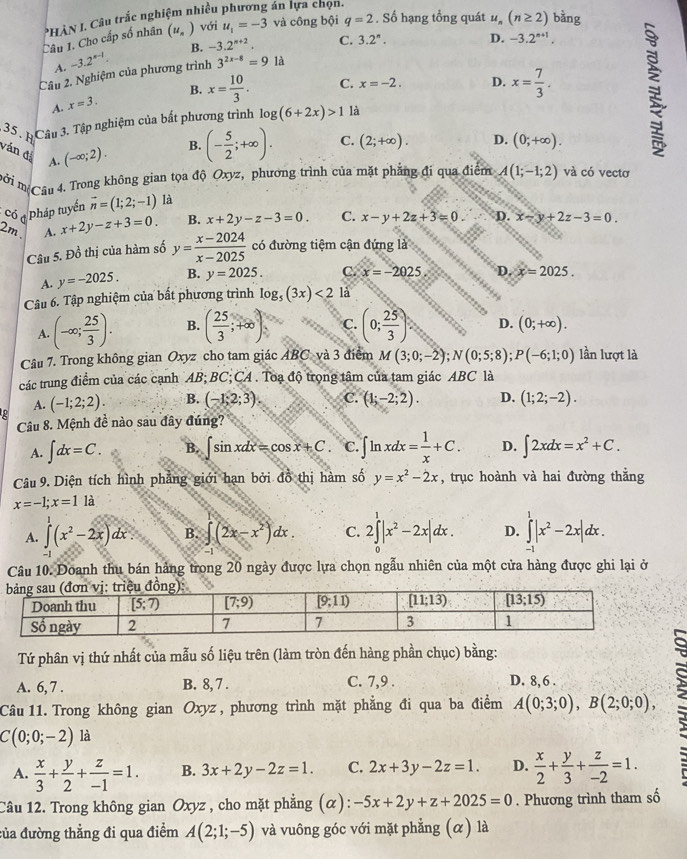 PHẦN I. Câu trắc nghiệm nhiều phương án lựa chọn.
Câu 1. Cho cấp số nhân (uₙ) với u₁ = −3 và công bội q = 2. Số hạng tổng quát uₙ (n ≥ 2) bằng
A. −3.2ⁿ⁻¹. B. −3.2ⁿ⁺². C. 3.2ⁿ. D. −3.2ⁿ⁺¹.
Câu 2. Nghiệm của phương trình 3²ˣ⁻⁸ = 9 là
A. x = 3. B. x = 10/3. C. x = −2. D. x = 7/3.
35. h
Câu 3. Tập nghiệm của bất phương trình log(6+2x) > 1 là
ván đ
A. (−∞;2). B. (−5/2;+∞). C. (2;+∞). D. (0;+∞).
Câu 4. Trong không gian tọa độ Oxyz, phương trình của mặt phẳng đi qua điểm A(1;−1;2) và có vectơ
có
pháp tuyến n⃗ = (1;2;−1) là
2m.
A. x+2y−z+3=0. B. x+2y−z−3=0. C. x−y+2z+3=0. D. x−y+2z−3=0.
Câu 5. Đồ thị của hàm số y = (x−2024)/(x−2025) có đường tiệm cận đứng là
A. y = −2025. B. y = 2025. C. x = −2025. D. x = 2025.
Câu 6. Tập nghiệm của bất phương trình log₅(3x) < 2 là
A. (−∞;25/3). B. (25/3;+∞). C. (0;25/3). D. (0;+∞).
Câu 7. Trong không gian Oxyz cho tam giác ABC và 3 điểm M(3;0;−2); N(0;5;8); P(−6;1;0) lần lượt là
các trung điểm của các cạnh AB; BC; CA. Toạ độ trọng tâm của tam giác ABC là
A. (−1;2;2). B. (−1;2;3). C. (1;−2;2). D. (1;2;−2).
Câu 8. Mệnh đề nào sau đây đúng?
A. ∫dx = C. B. ∫sin xdx = cos x + C. C. ∫ln xdx = 1/x + C. D. ∫2xdx = x² + C.
Câu 9. Diện tích hình phẳng giới hạn bởi đồ thị hàm số y = x² − 2x, trục hoành và hai đường thẳng
x = −1; x = 1 là
A. ∫₋₁¹(x²−2x)dx. B. ∫₋₁¹(2x−x²)dx. C. 2∫₀¹|x²−2x|dx. D. ∫₋₁¹|x²−2x|dx.
Câu 10. Doanh thu bán hàng trong 20 ngày được lựa chọn ngẫu nhiên của một cửa hàng được ghi lại ở
bảng sau (đơn vị: triệu đồng):
Doanh thu [5;7) [7;9) [9;11) [11;13) [13;15)
Số ngày 2 7 7 3 1
Tứ phân vị thứ nhất của mẫu số liệu trên (làm tròn đến hàng phần chục) bằng:
A. 6,7. B. 8,7. C. 7,9. D. 8,6.
Câu 11. Trong không gian Oxyz, phương trình mặt phẳng đi qua ba điểm A(0;3;0), B(2;0;0),
C(0;0;−2) là
A. x/3 + y/2 + z/−1 = 1. B. 3x+2y−2z=1. C. 2x+3y−2z=1. D. x/2 + y/3 + z/−2 = 1.
Câu 12. Trong không gian Oxyz, cho mặt phẳng (α): −5x+2y+z+2025=0. Phương trình tham số
của đường thẳng đi qua điểm A(2;1;−5) và vuông góc với mặt phẳng (α) là
LỚP TOÁN THẦY THIÊN
TOÁN THẦY THIÊN